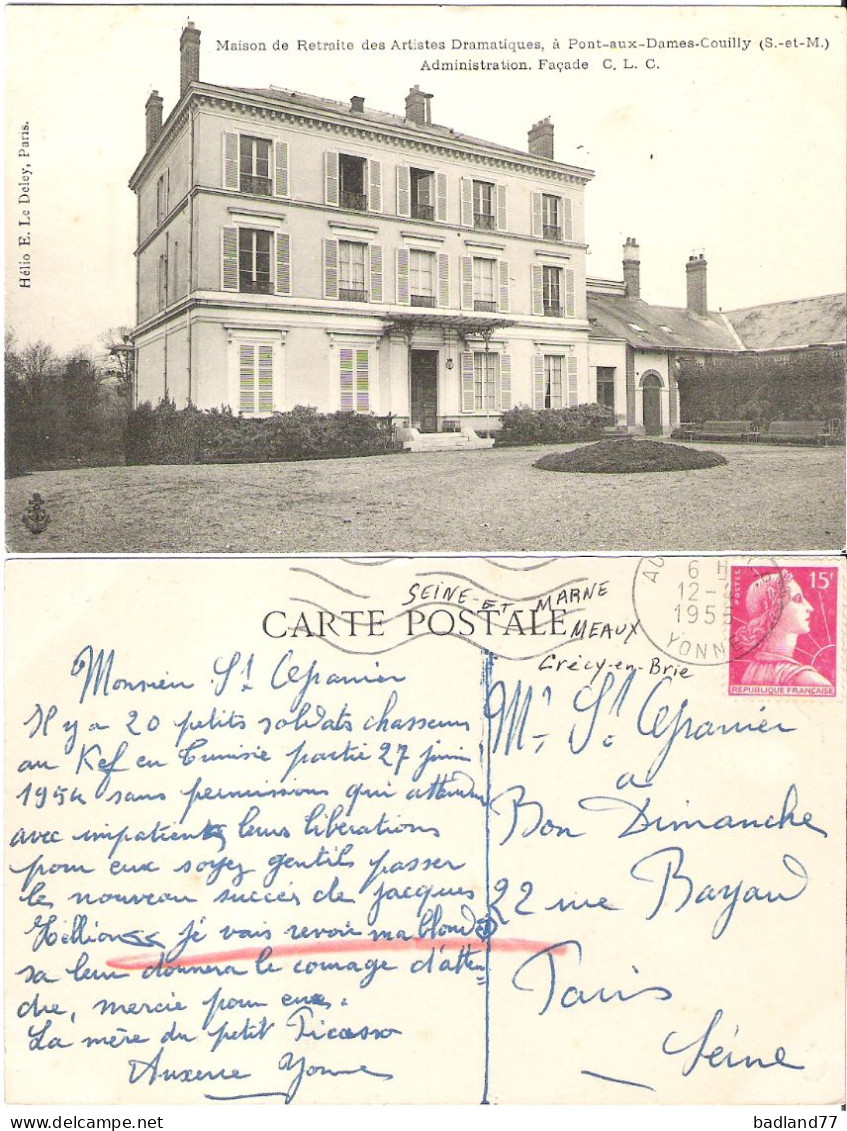 Maison de Retraite des Artistes Dramatiques, à Pont-aux-Dames-Couilly (S.-et-M.)
Administration. Façade C. L. C.
Hélio E. Le Deley, Paris.
CARTE POSTALE
SEINE-ET MARNE
MEAUX
Crécy-en-Brie
6 H
12-
195
YONNE
POSTES
15F
REPUBLIQUE FRANÇAISE
Monsieur St Granier
Il y a 20 petits soldats chasseurs
au Kef en Tunisie partie 27 juin
1954 sans permissions qui attenden
avec impatient leurs libérations
pour eux soyez gentils passer
le nouveau succès de Jacques
Hellion << je vais revoir ma blonde >>
sa leur donnera le courage d'atten
dre, mercie pour eux.
La mère du petit Picasso
Auxerre Yonne
Mr St Granier
a
Bon Dimanche
22 rue Bayard
Paris
Seine
badland77